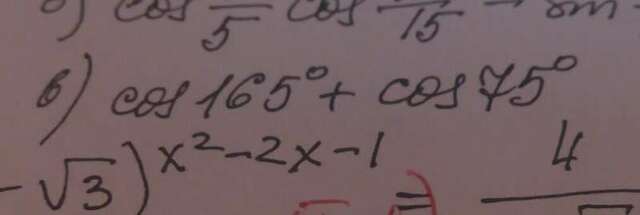 cos /5 cos /15 -
в) cos 165° + cos 75°
- √3)^(x²-2x-1) = 4/√